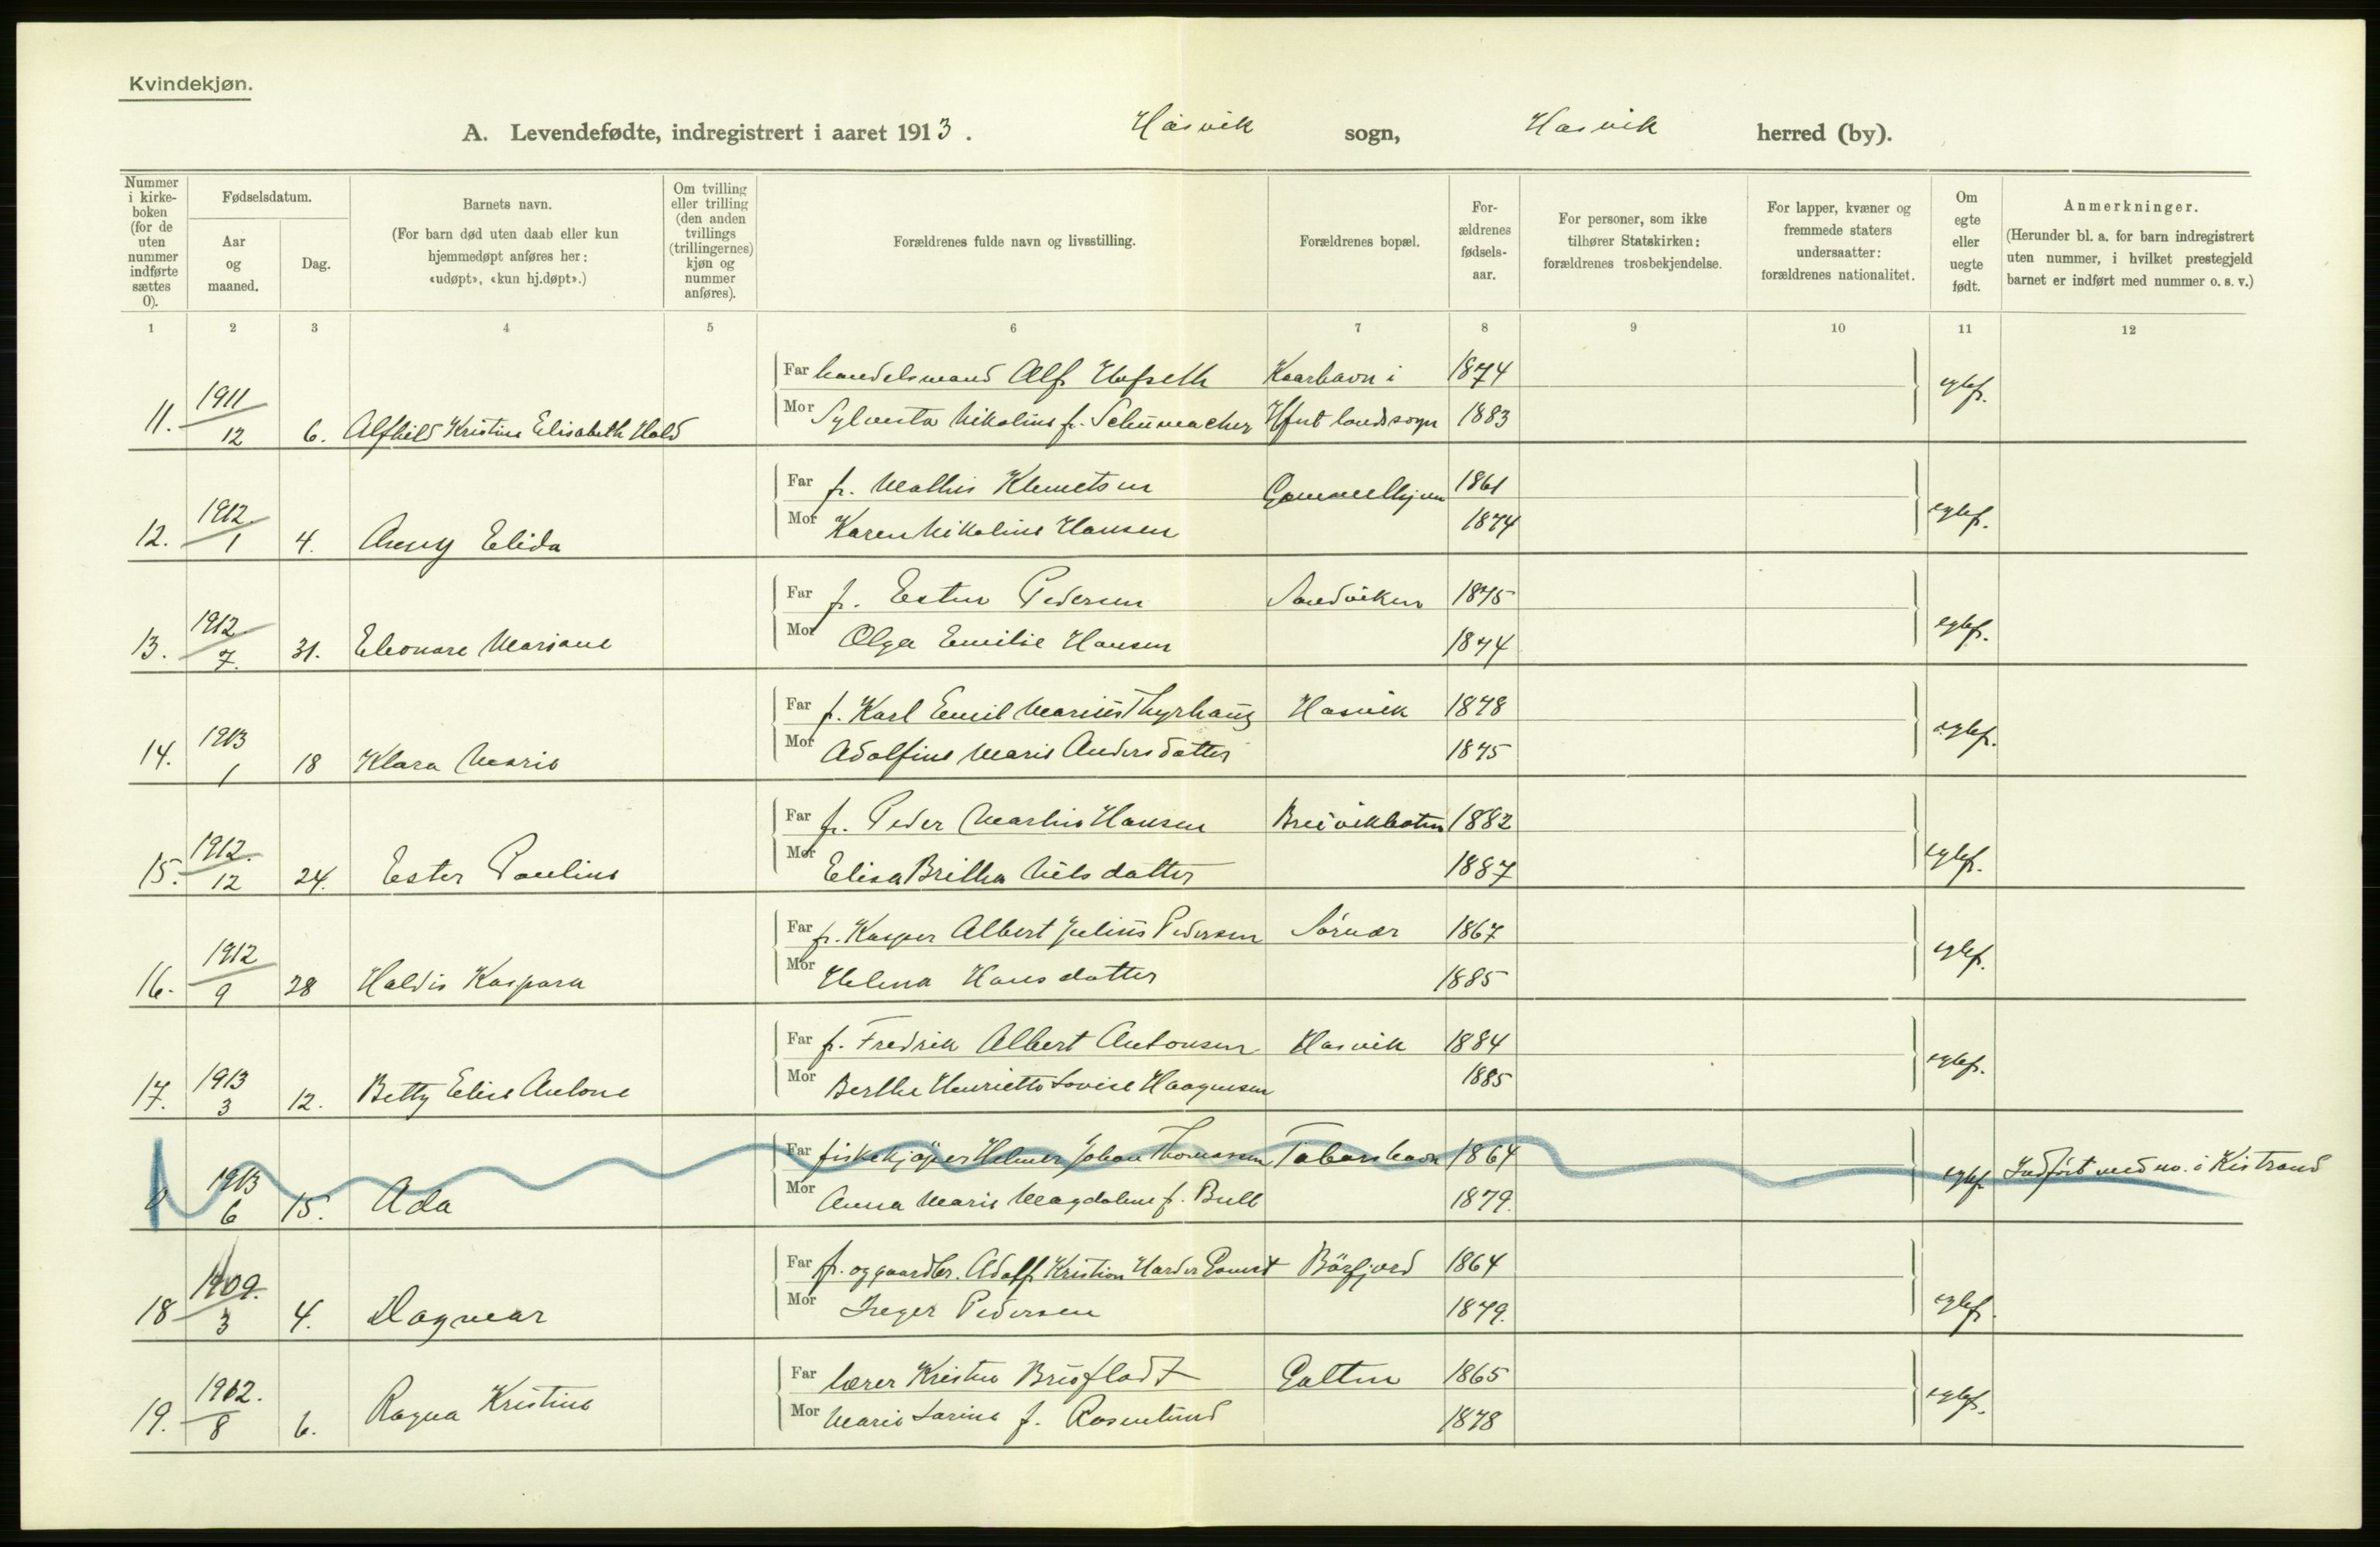 Kvindekjøn.
A. Levendefødte, indregistrert i aaret 1913. Hasvik sogn, Hasvik herred (by).
Nummer i kirkeboken (for de uten nummer indførte sættes 0).
Fødselsdatum.
Aar og maaned.
Dag.
Barnets navn.
(For barn død uten daab eller kun hjemmedøpt anføres her: «udøpt», «kun hj.døpt».)
Om tvilling eller trilling (den anden tvillings (trillingernes) kjøn og nummer anføres).
Forældrenes fulde navn og livsstilling.
Forældrenes bopæl.
Forældrenes fødselsaar.
For personer, som ikke tilhører Statskirken: forældrenes trosbekjendelse.
For lapper, kvæner og fremmede staters undersaatter: forældrenes nationalitet.
Om egte eller uegte født.
Anmerkninger.
(Herunder bl. a. for barn indregistrert uten nummer, i hvilket prestegjeld barnet er indført med nummer o. s. v.)
1 2 3 4 5 6 7 8 9 10 11 12
Far handelsmand Alf Hofseth Kaarhavn i 1874
11. 1911 12 6. Alfhild Kristine Elisabeth Hald Mor Sylvesta Nikoline f. Schumacher Hfest landsogn 1883 egtef.
Far f. Mathis Klemetsen Gammelhjem 1861
12. 1912. 1 4. Anny Elida Mor Karen Nikoline Hansen 1874 egtef.
Far f. Ester Pedersen Sandviken 1875
13. 1912. 7. 31. Eleonore Mariane Mor Olga Emilie Hansen 1874 egtef.
Far f. Karl Emil Marius Thyrhaug Hasvik 1878
14. 1913 1 18 Klara Marie Mor Adolfine Marie Andersdatter 1875 egtef.
Far f. Peder Martin Hansen Breivikbotn 1882
15. 1912. 12 24. Ester Pauline Mor Elisa Britha Nilsdatter 1887 egtef.
Far f. Kasper Albert Julius Pedersen Sørvær 1867
16. 1912 9 28 Haldis Kaspara Mor Helena Hansdatter 1885 egtef.
Far f. Fredrik Albert Antonsen Hasvik 1884
17. 1913 3 12. Betty Elise Antone Mor Berthe Henriette Lovise Haagensen 1885 egtef.
Far fiskekjøper Helmer Johan Thomassen Tobarshavn 1864
0 1913 6 15. Ada Mor Anna Marie Magdalene f. Bull 1879. egtef. Indført med no. i Kistrand
Far f. og gaardbr. Adolf Kristian Harder Bbørfjord 1864
18 1909. 3 4. Dagmar Mor Inger Pedersen 1879. egtef.
Far lærer Kristen Breifladt Galten 1865
19. 1912. 8 6. Ragna Kristine Mor Marie Larine f. Rosenlund 1878 egtef.